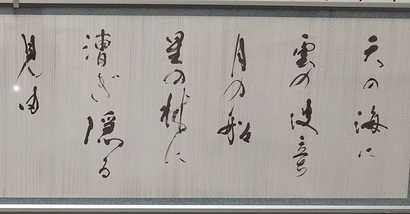 天の海に
雲の波立ち
月の船
星の林に
漕ぎ隠る
見ゆ